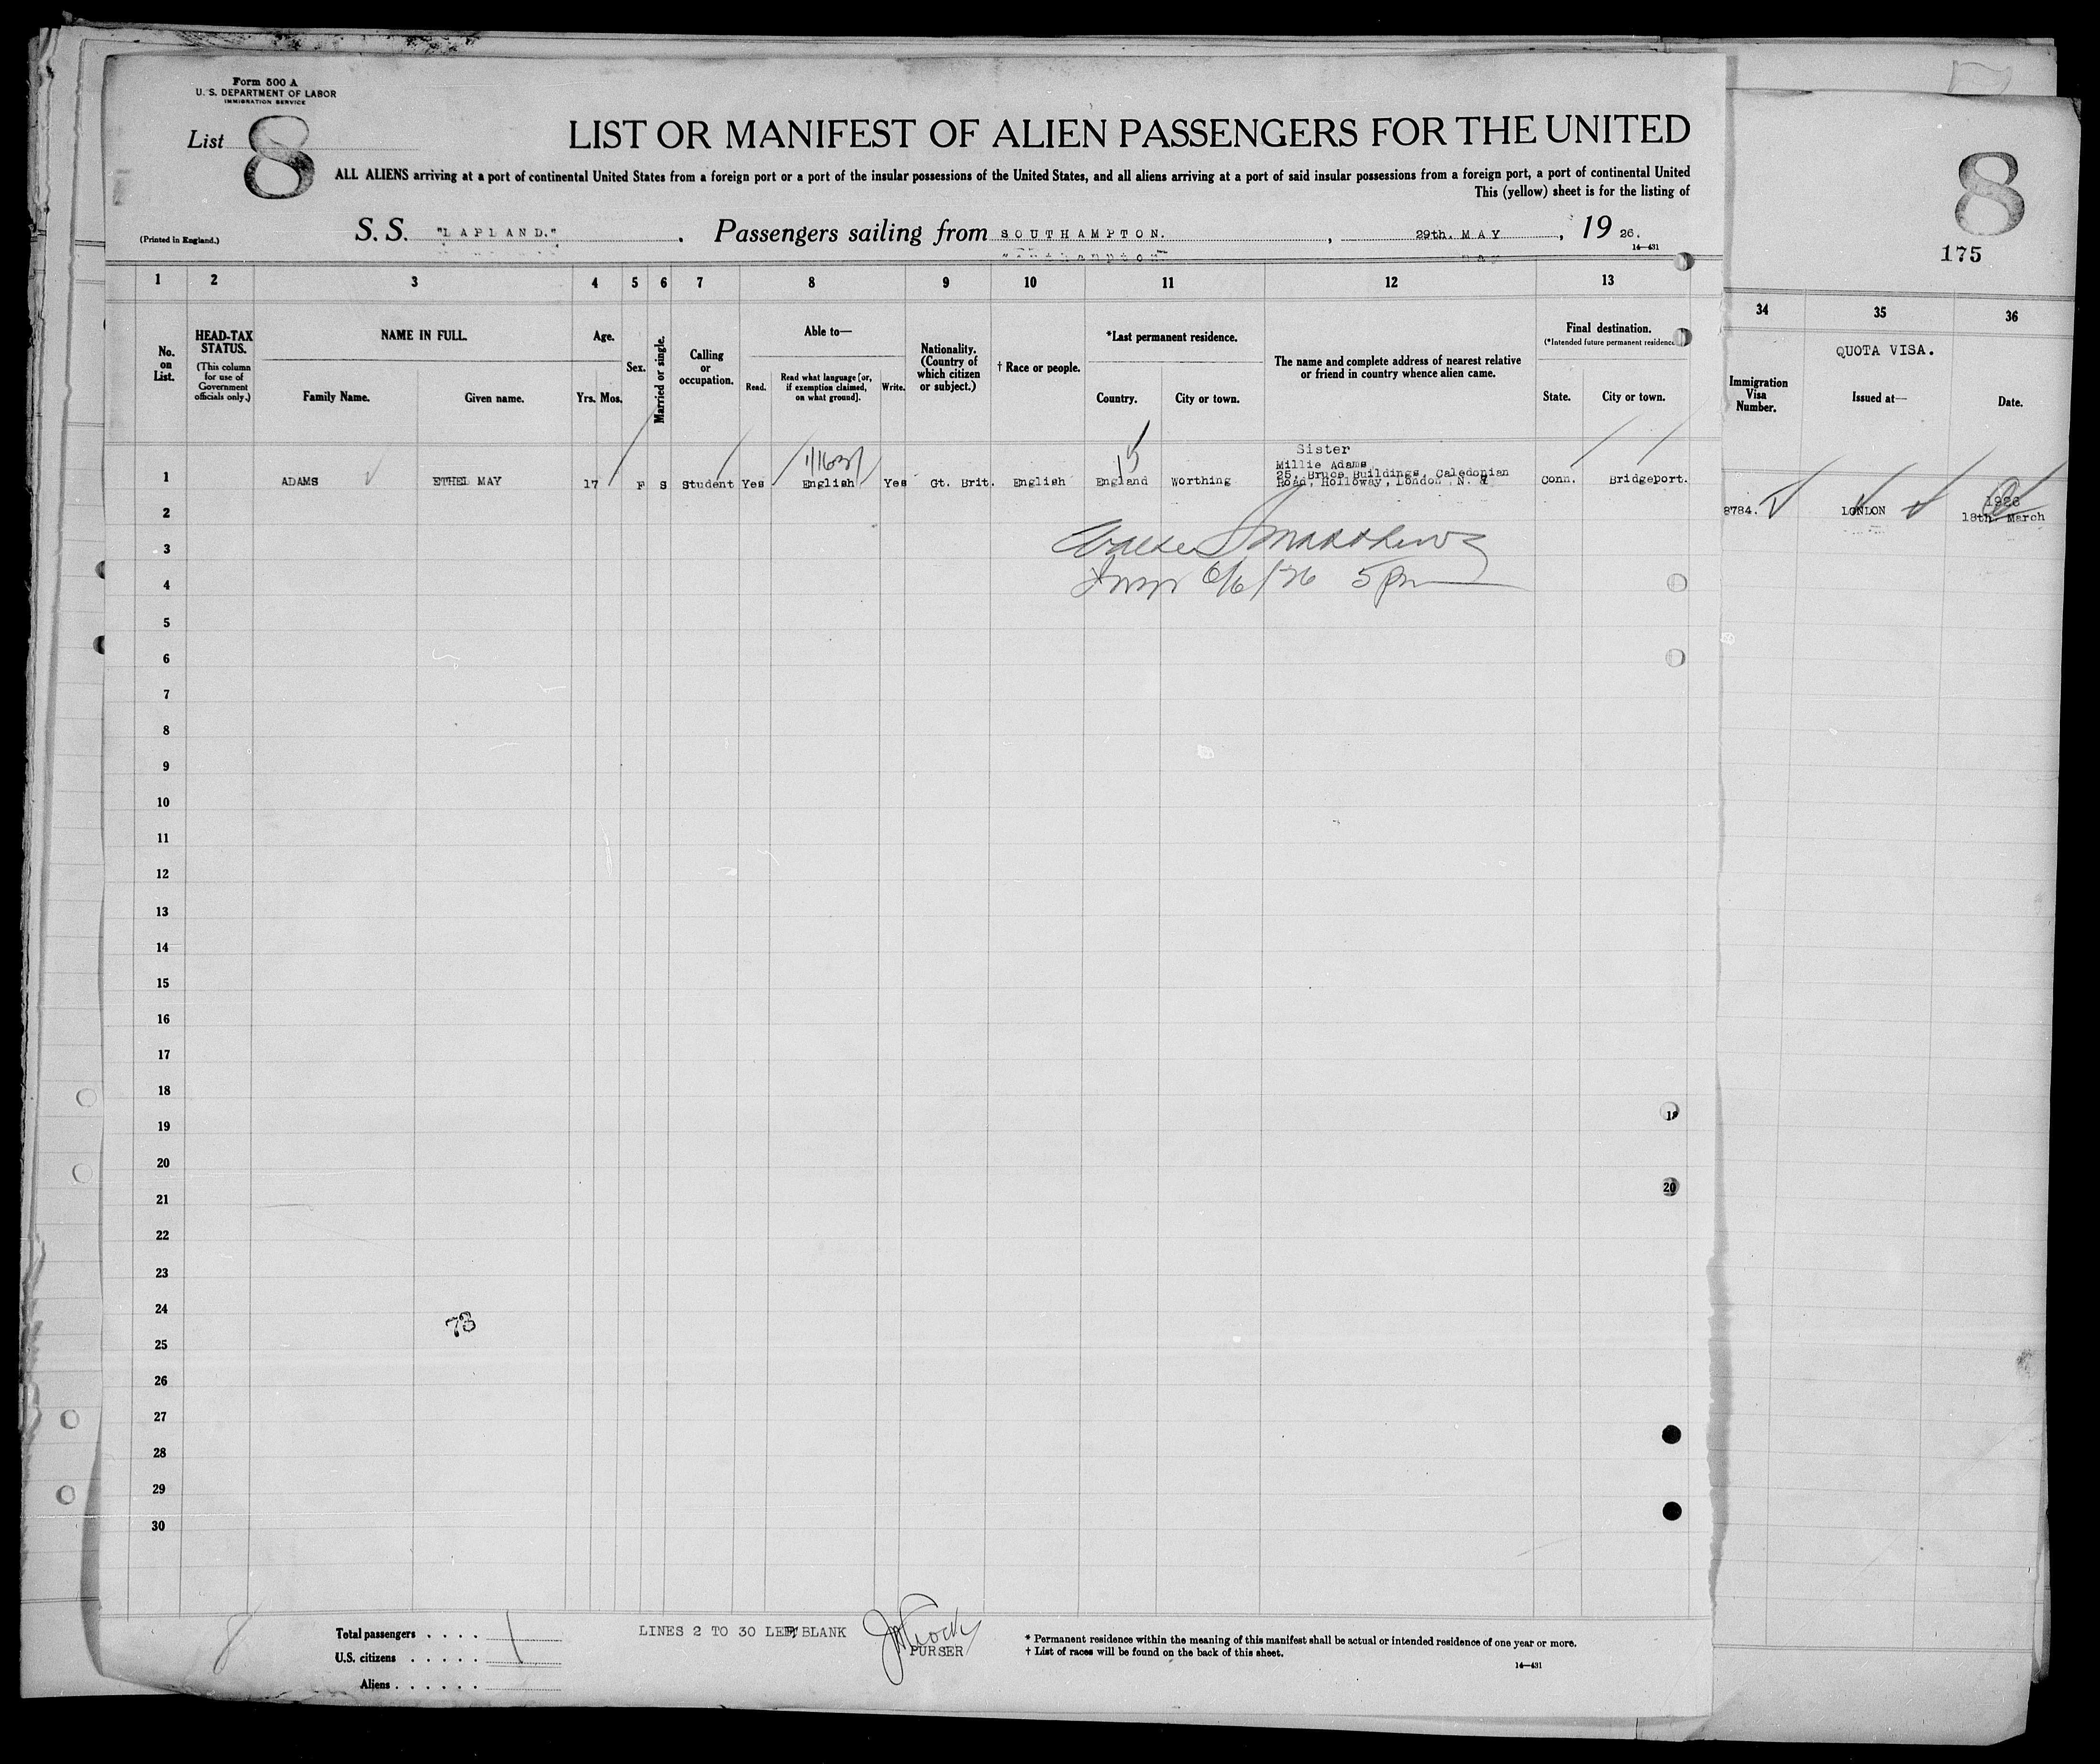 Form 500 A
U. S. DEPARTMENT OF LABOR
IMMIGRATION SERVICE
List 8
LIST OR MANIFEST OF ALIEN PASSENGERS FOR THE UNITED
ALL ALIENS arriving at a port of continental United States from a foreign port or a port of the insular possessions of the United States, and all aliens arriving at a port of said insular possessions from a foreign port, a port of continental United
This (yellow) sheet is for the listing of
(Printed in England.)
S. S. "LAPLAND." . Passengers sailing from SOUTHAMPTON. , 29th. MAY , 19 26.
14—431
8
175
1 2 3 4 5 6 7 8 9 10 11 12 13
34 35 36
No. on List.
HEAD-TAX STATUS.
(This column for use of Government officials only.)
NAME IN FULL.
Family Name.
Given name.
Age.
Yrs. Mos.
Sex.
Married or single.
Calling or occupation.
Able to—
Read.
Read what language [or, if exemption claimed, on what ground].
Write.
Nationality. (Country of which citizen or subject.)
† Race or people.
*Last permanent residence.
Country.
City or town.
The name and complete address of nearest relative or friend in country whence alien came.
Final destination.
(*Intended future permanent residence
State.
City or town.
Immigration Visa Number.
QUOTA VISA.
Issued at—
Date.
1 ADAMS ETHEL MAY 17 F S Student Yes English Yes Gt. Brit. English England Worthing
Sister
Millie Adams,
25, Bruce Buildings, Caledonian
Road, Holloway, London, N. 7
Conn. Bridgeport.
8784. LONDON 1926
18th. March
2
3
4
6/6/26 5 pm
5
6
7
8
9
10
11
12
13
14
15
16
17
18
19
20
21
22
23
24
73
25
26
27
28
29
30
18
20
8
Total passengers . . . . 1
U.S. citizens . . . . .
Aliens . . . . . .
LINES 2 TO 30 LEFT BLANK
PURSER
* Permanent residence within the meaning of this manifest shall be actual or intended residence of one year or more.
† List of races will be found on the back of this sheet.
14—431